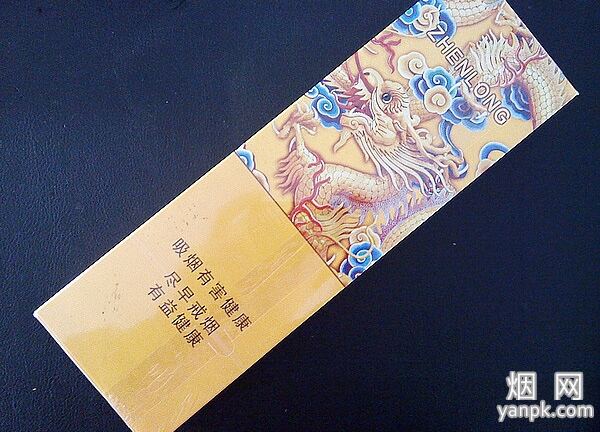 ZHENLONG
吸烟有害健康
尽早戒烟
有益健康
烟网
yanpk.com